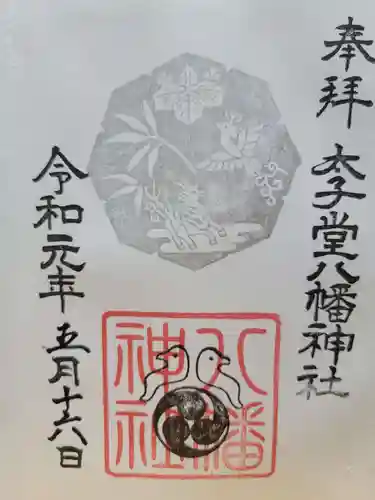 奉拝
太子堂八幡神社
八幡
神社
令和元年五月十六日